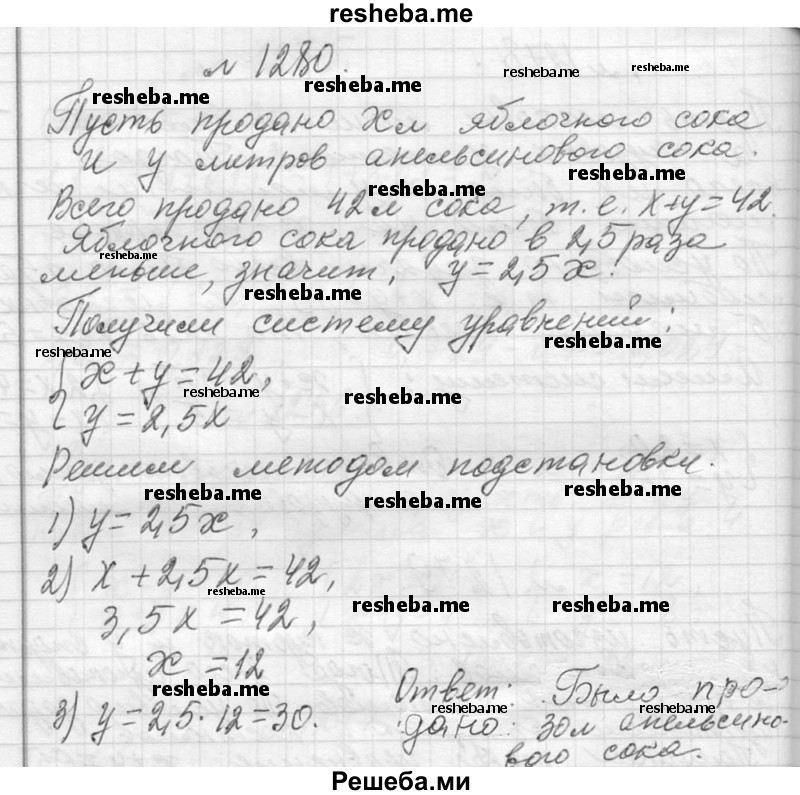 resheba.me
№ 1280.
resheba.me resheba.me resheba.me resheba.me
Пусть продано x л яблочного сока
и y литров апельсинового сока.
resheba.me resheba.me
Всего продано 42 л сока, т. е. x+y=42.
Яблочного сока продано в 2,5 раза
resheba.me
меньше, значит, y=2,5x.
resheba.me
Получим систему уравнений:
resheba.me resheba.me
{ x+y=42,
resheba.me resheba.me
y=2,5x
Решим методом подстановки.
resheba.me resheba.me resheba.me
1) y=2,5x,
2) x+2,5x=42,
resheba.me resheba.me resheba.me
3,5x=42,
x=12
resheba.me
Ответ: Было про-
3) y=2,5·12=30.
resheba.me resheba.me
дано: 30л апельсино-
вого сока.
Решеба.ми